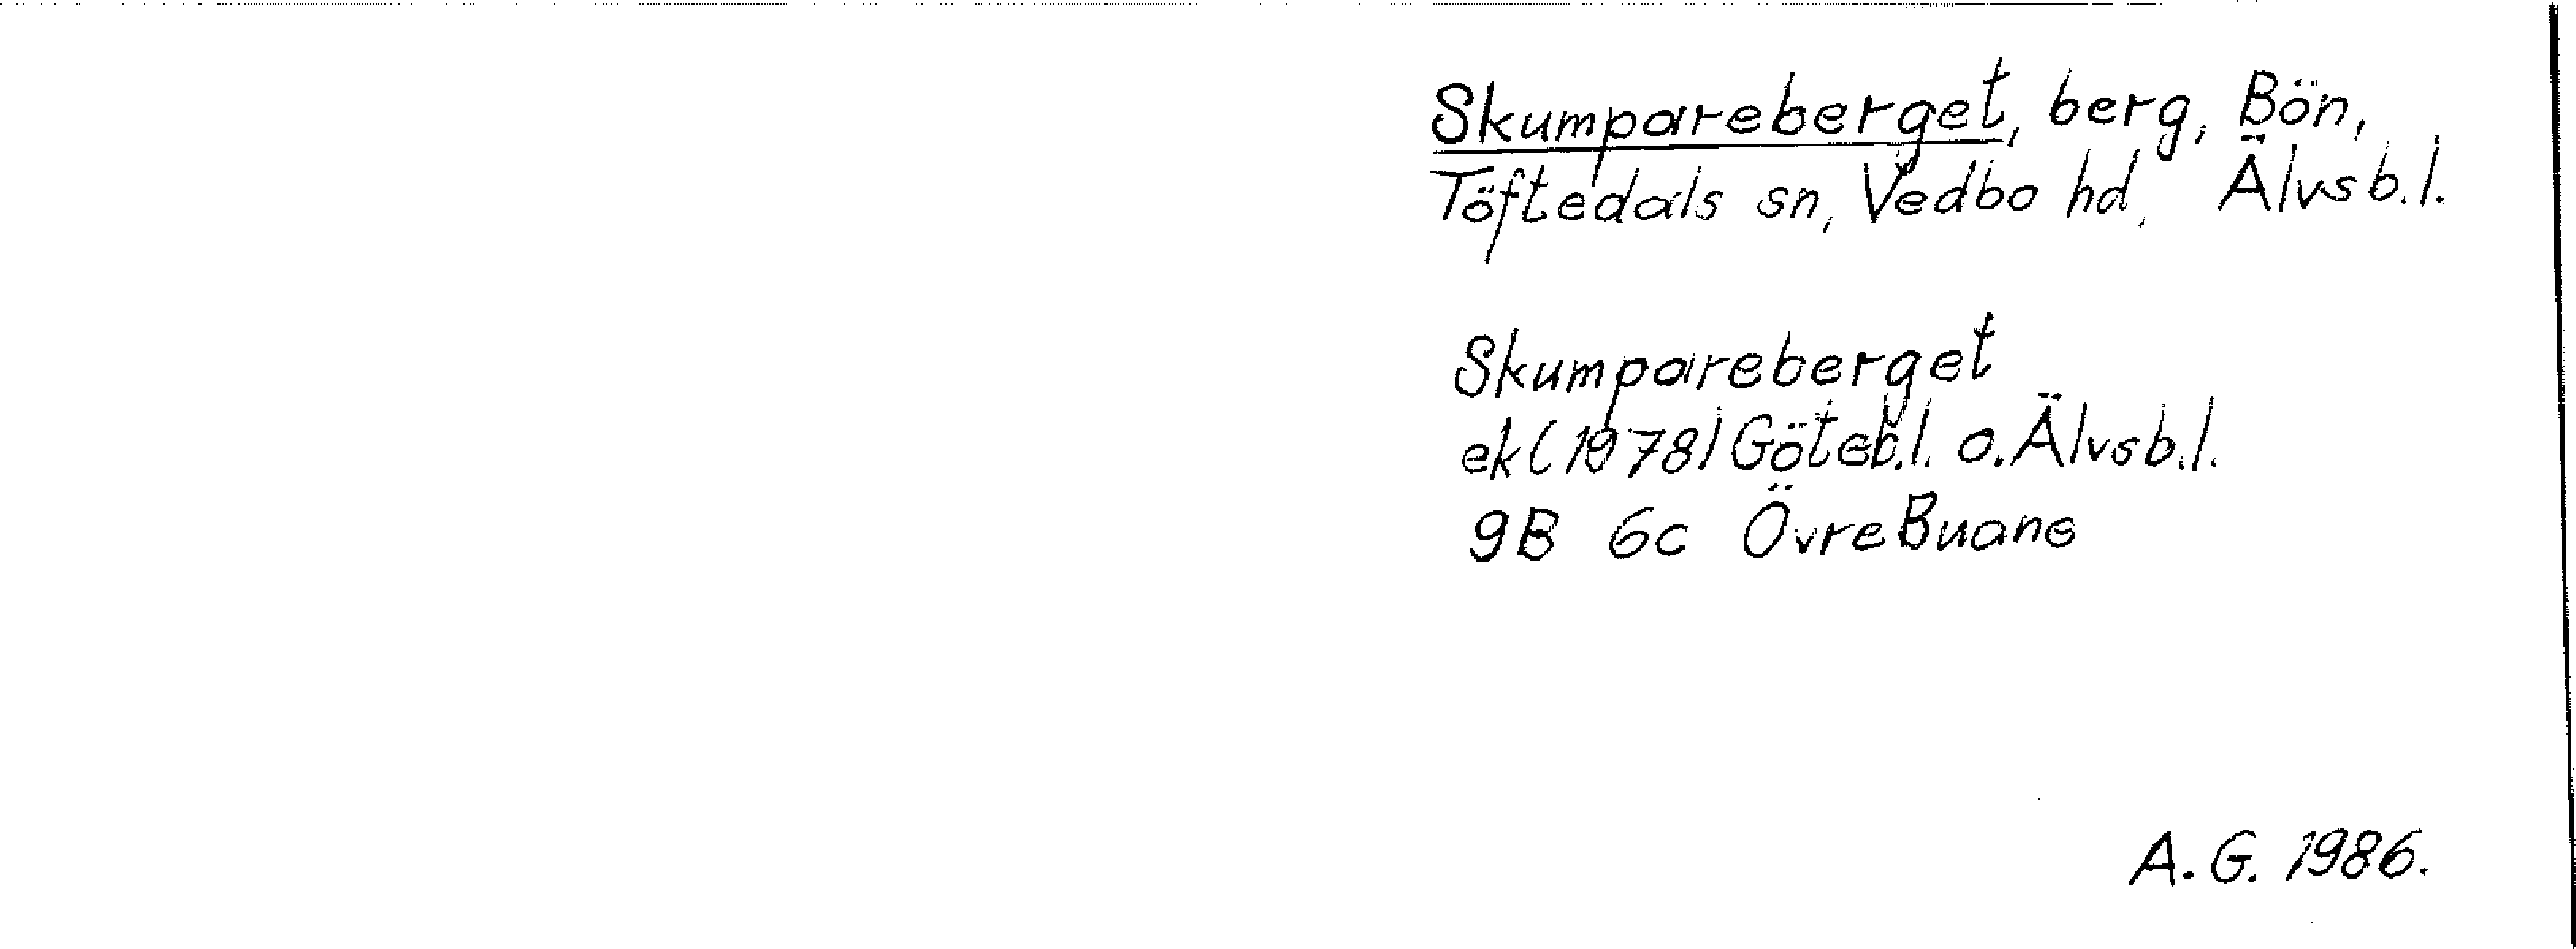 Skumpareberget, berg, Bön,
Töftedals sn, Vedbo hd, Älvsb.l.
Skumpareberget
ek (1978) Göteb.l. o. Älvsb.l.
9B 6c Övre Buane
A. G. 1986.